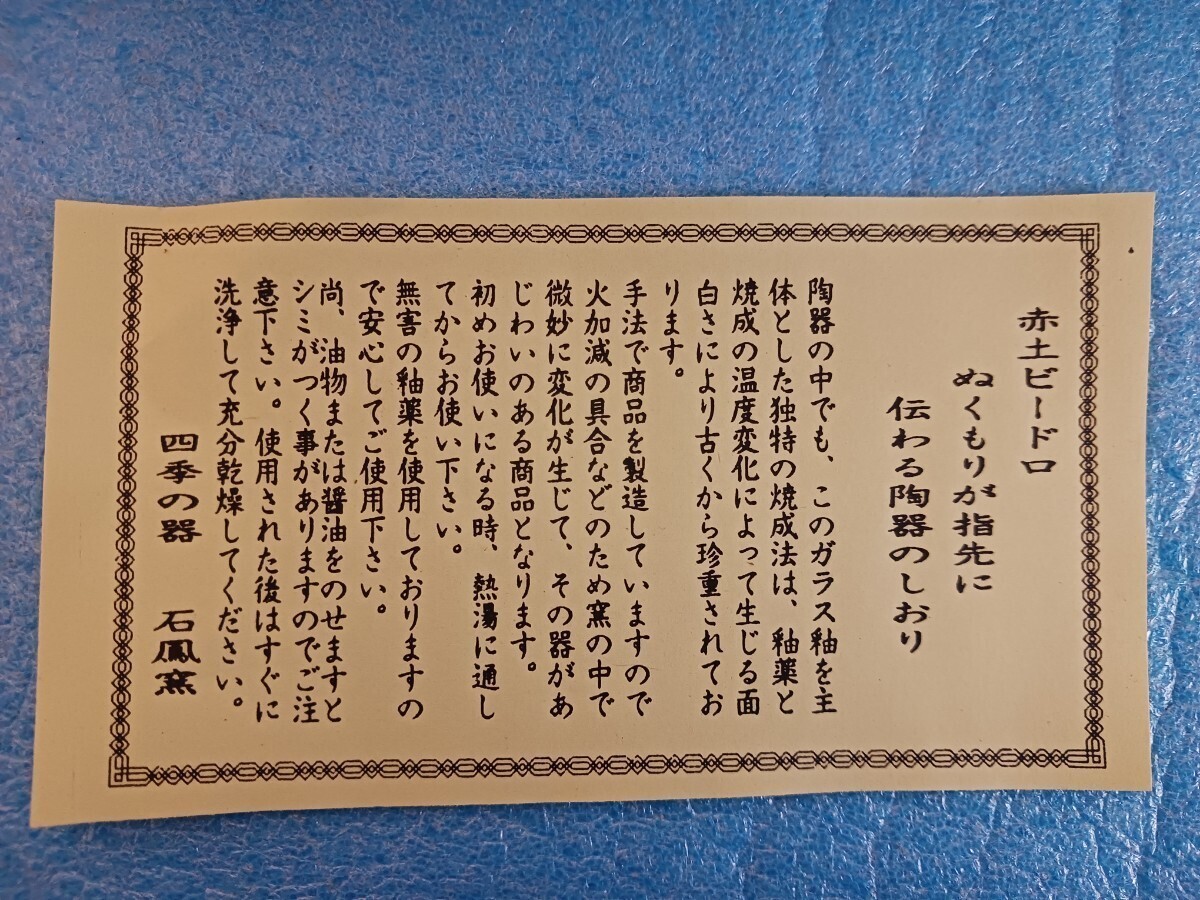 赤土ビードロ
ぬくもりが指先に
伝わる陶器のしおり
陶器の中でも、このガラス釉を主
体とした独特の焼成法は、釉薬と
焼成の温度変化によって生じる面
白さにより古くから珍重されてお
ります。
手法で商品を製造していますので
火加減の具合などのため窯の中で
微妙に変化が生じて、その器があ
じわいのある商品となります。
初めお使いになる時、熱湯に通し
てからお使い下さい。
無害の釉薬を使用しておりますの
で安心してご使用下さい。
尚、油物または醤油をのせますと
シミがつく事がありますのでご注
意下さい。使用された後はすぐに
洗浄して充分乾燥してください。
四季の器 石鳳窯